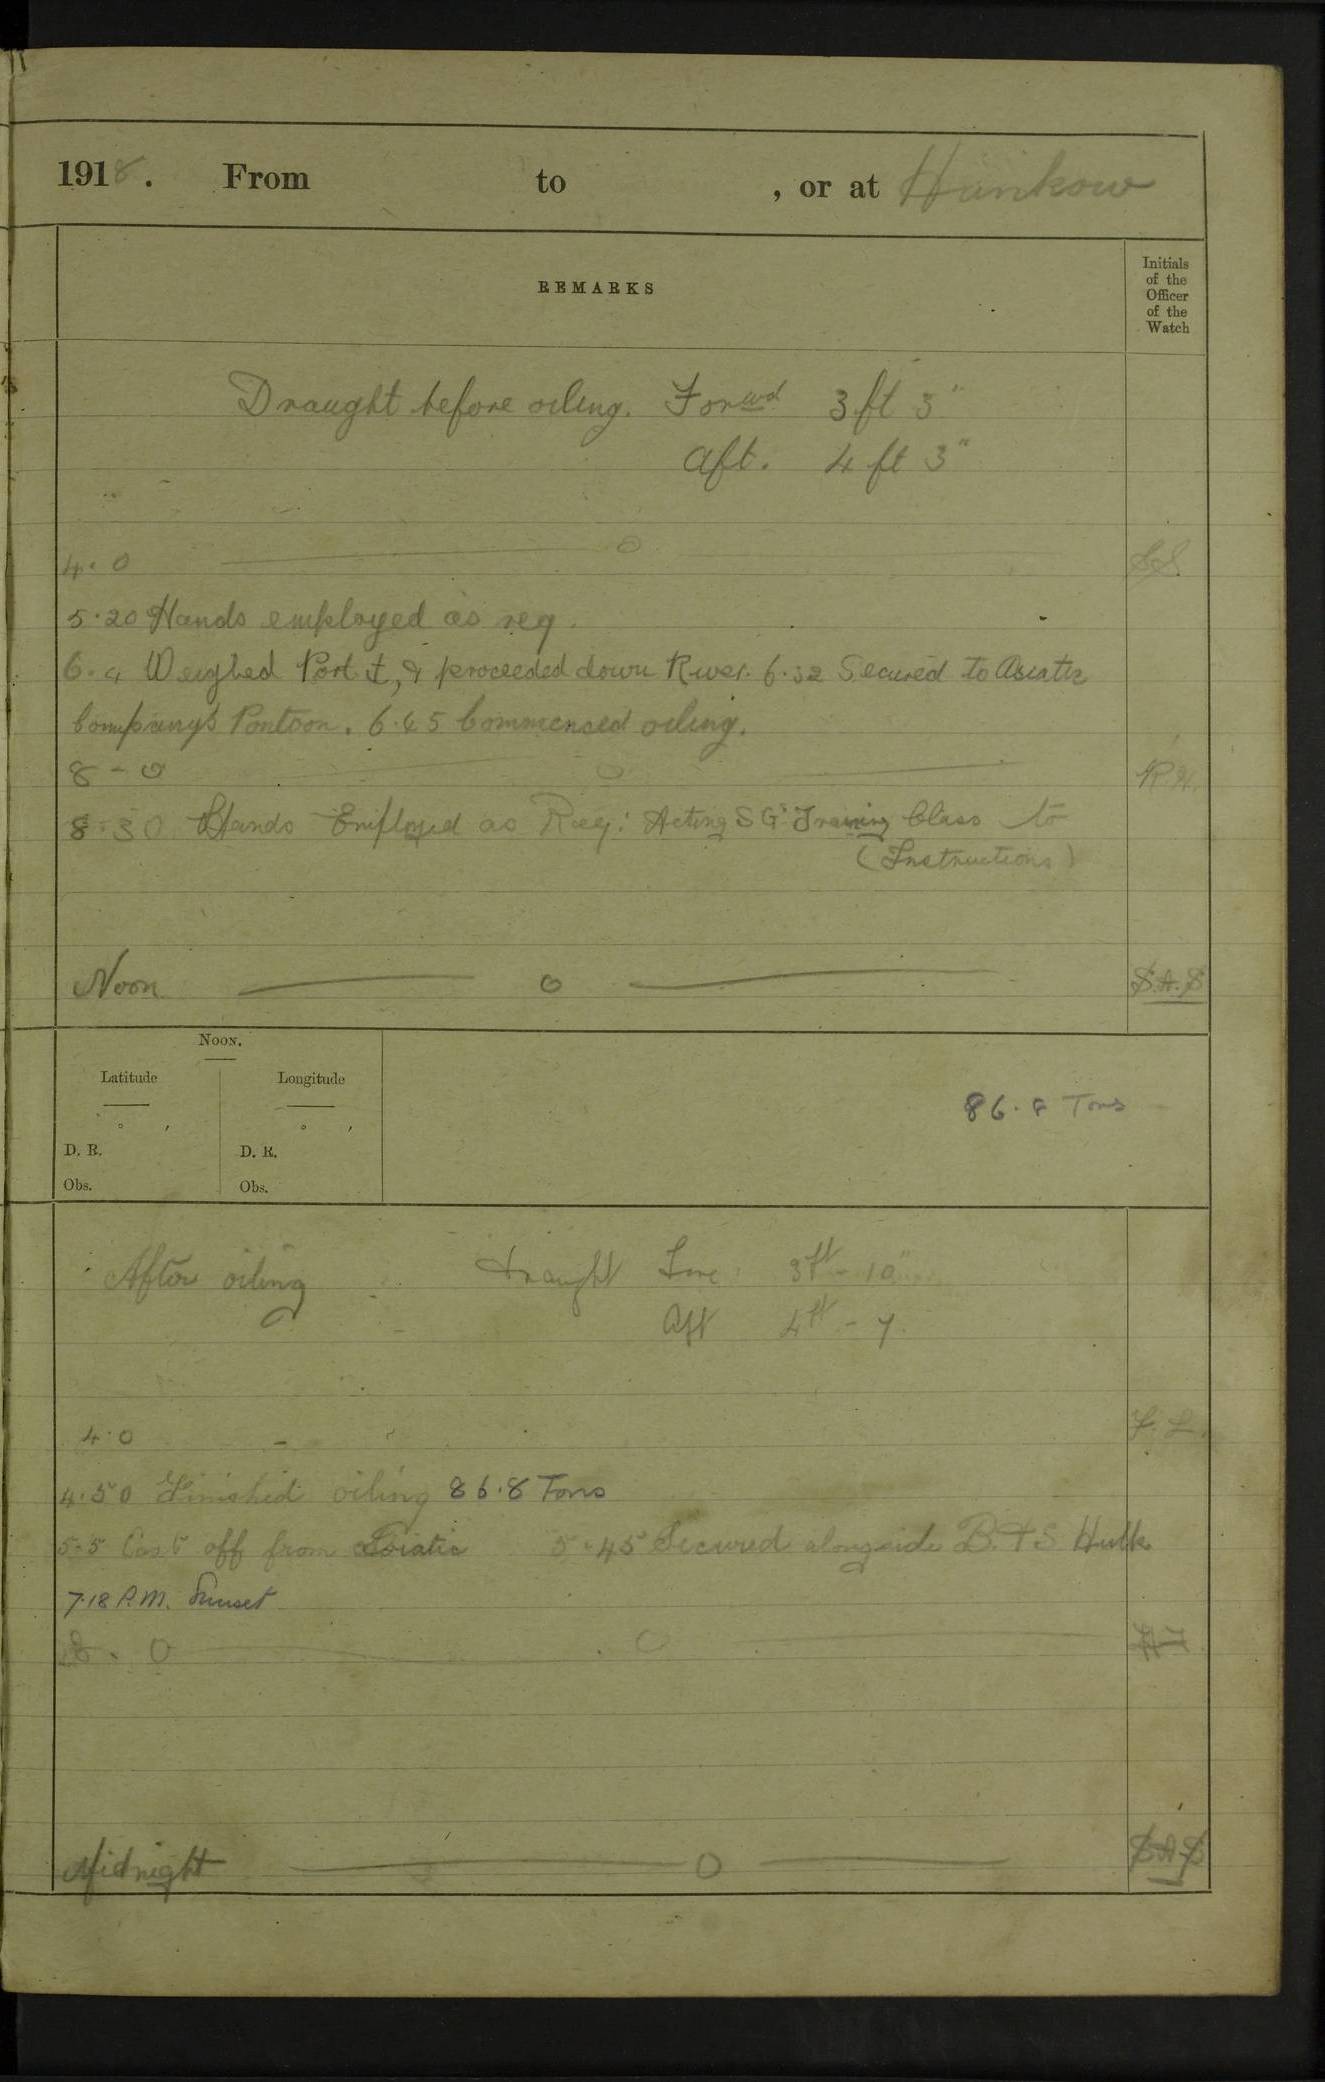 1918. From to , or at Hankow
REMARKS
Initials
of the
Officer
of the
Watch
Draught before oiling. Forwd 3 ft 3"
Aft. 4 ft 3"
4.0 o
5.20 Hands employed as req.
Weighed Port ⚓, & proceeded down River. 6.32 Secured to Asiatic
Company's Pontoon. 6.45 Commenced oiling.
8-0
8.30 Hands Employed as Req: Acting S G's Training Class to
(Instructions)
Noon o S.A.S
NOON.
Latitude Longitude
° ′ ° ′
D. R. D. R.
Obs. Obs.
86.8 Tons
After oiling draught Fore 3ft - 10"
Aft 4ft - 7
4.0 F.L.
4.50 Finished oiling 86.8 Tons
5-5 Cast off from Asiatic 5-45 Secured alongside B. & S Hulk
7.18 P.M. Sunset
8.0 O
Midnight O S.A.S